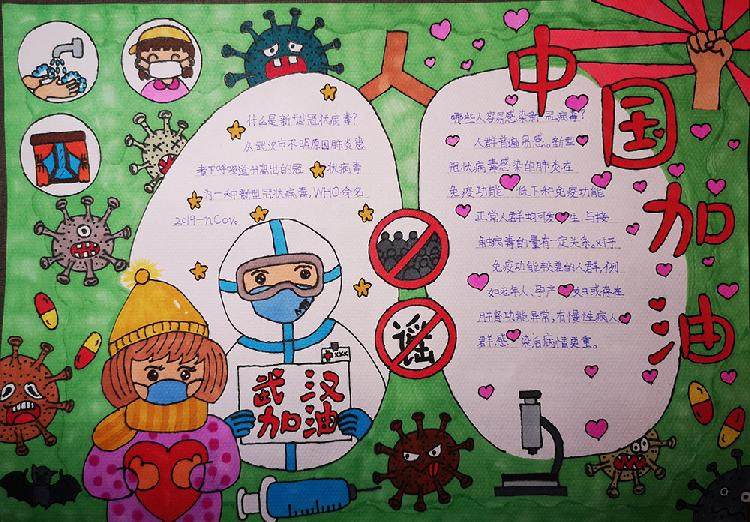 中国加油
什么是新型冠状病毒?
从武汉市不明原因肺炎患
者下呼吸道分离出的冠状病毒
为一种新型冠状病毒,WHO命名
2019-nCoV
武汉
加油
谣
哪些人容易感染新冠病毒?
人群普遍易感。新型
冠状病毒感染的肺炎在
免疫功能低下和免疫功能
正常人群均可发生,与接
触病毒的量有一定关系。对于
免疫功能较差的人群,例
如老年人、孕产妇或存在
肝肾功能异常,有慢性病人
群,感染后病情更重。